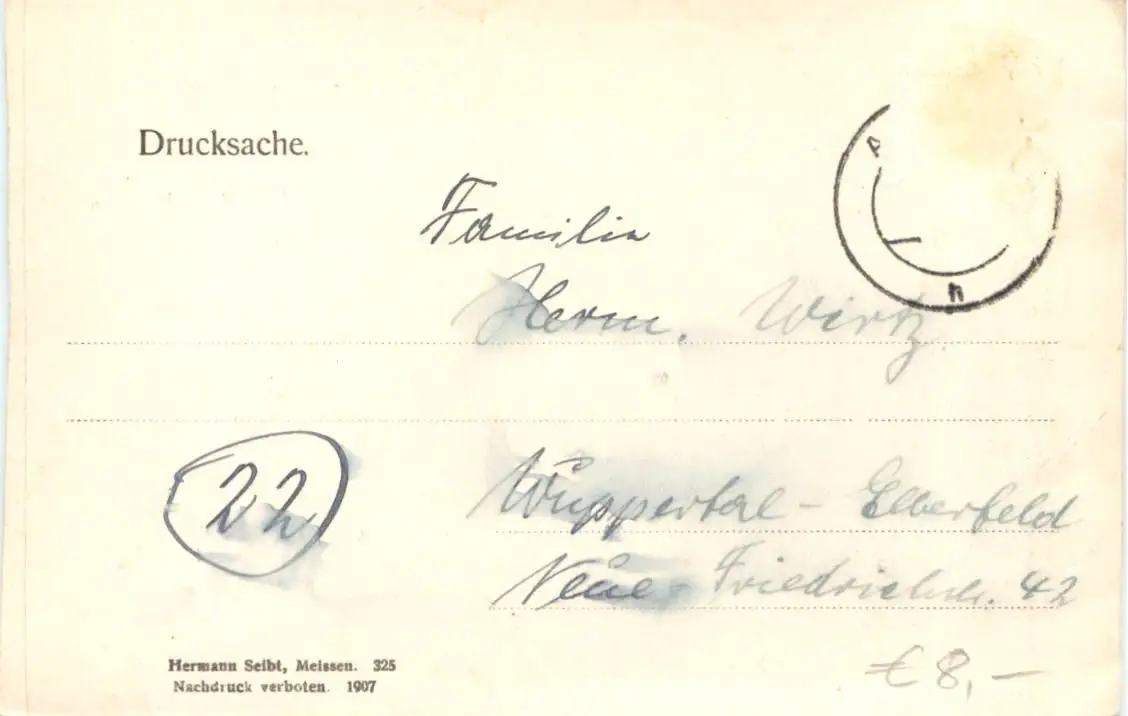 Drucksache.
Familie
Herm. Wirtz
22
Wuppertal - Elberfeld
Neue - Friedrichstr. 42
Hermann Seibt, Meissen. 325
Nachdruck verboten. 1907
€ 8,-